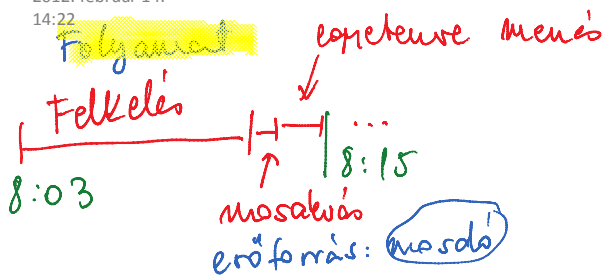 2012. február 14.
14:22
Folyamat
egyetemre menés
Felkelés
...
8:03
8:15
mosakvás
erőforrás: mosdó